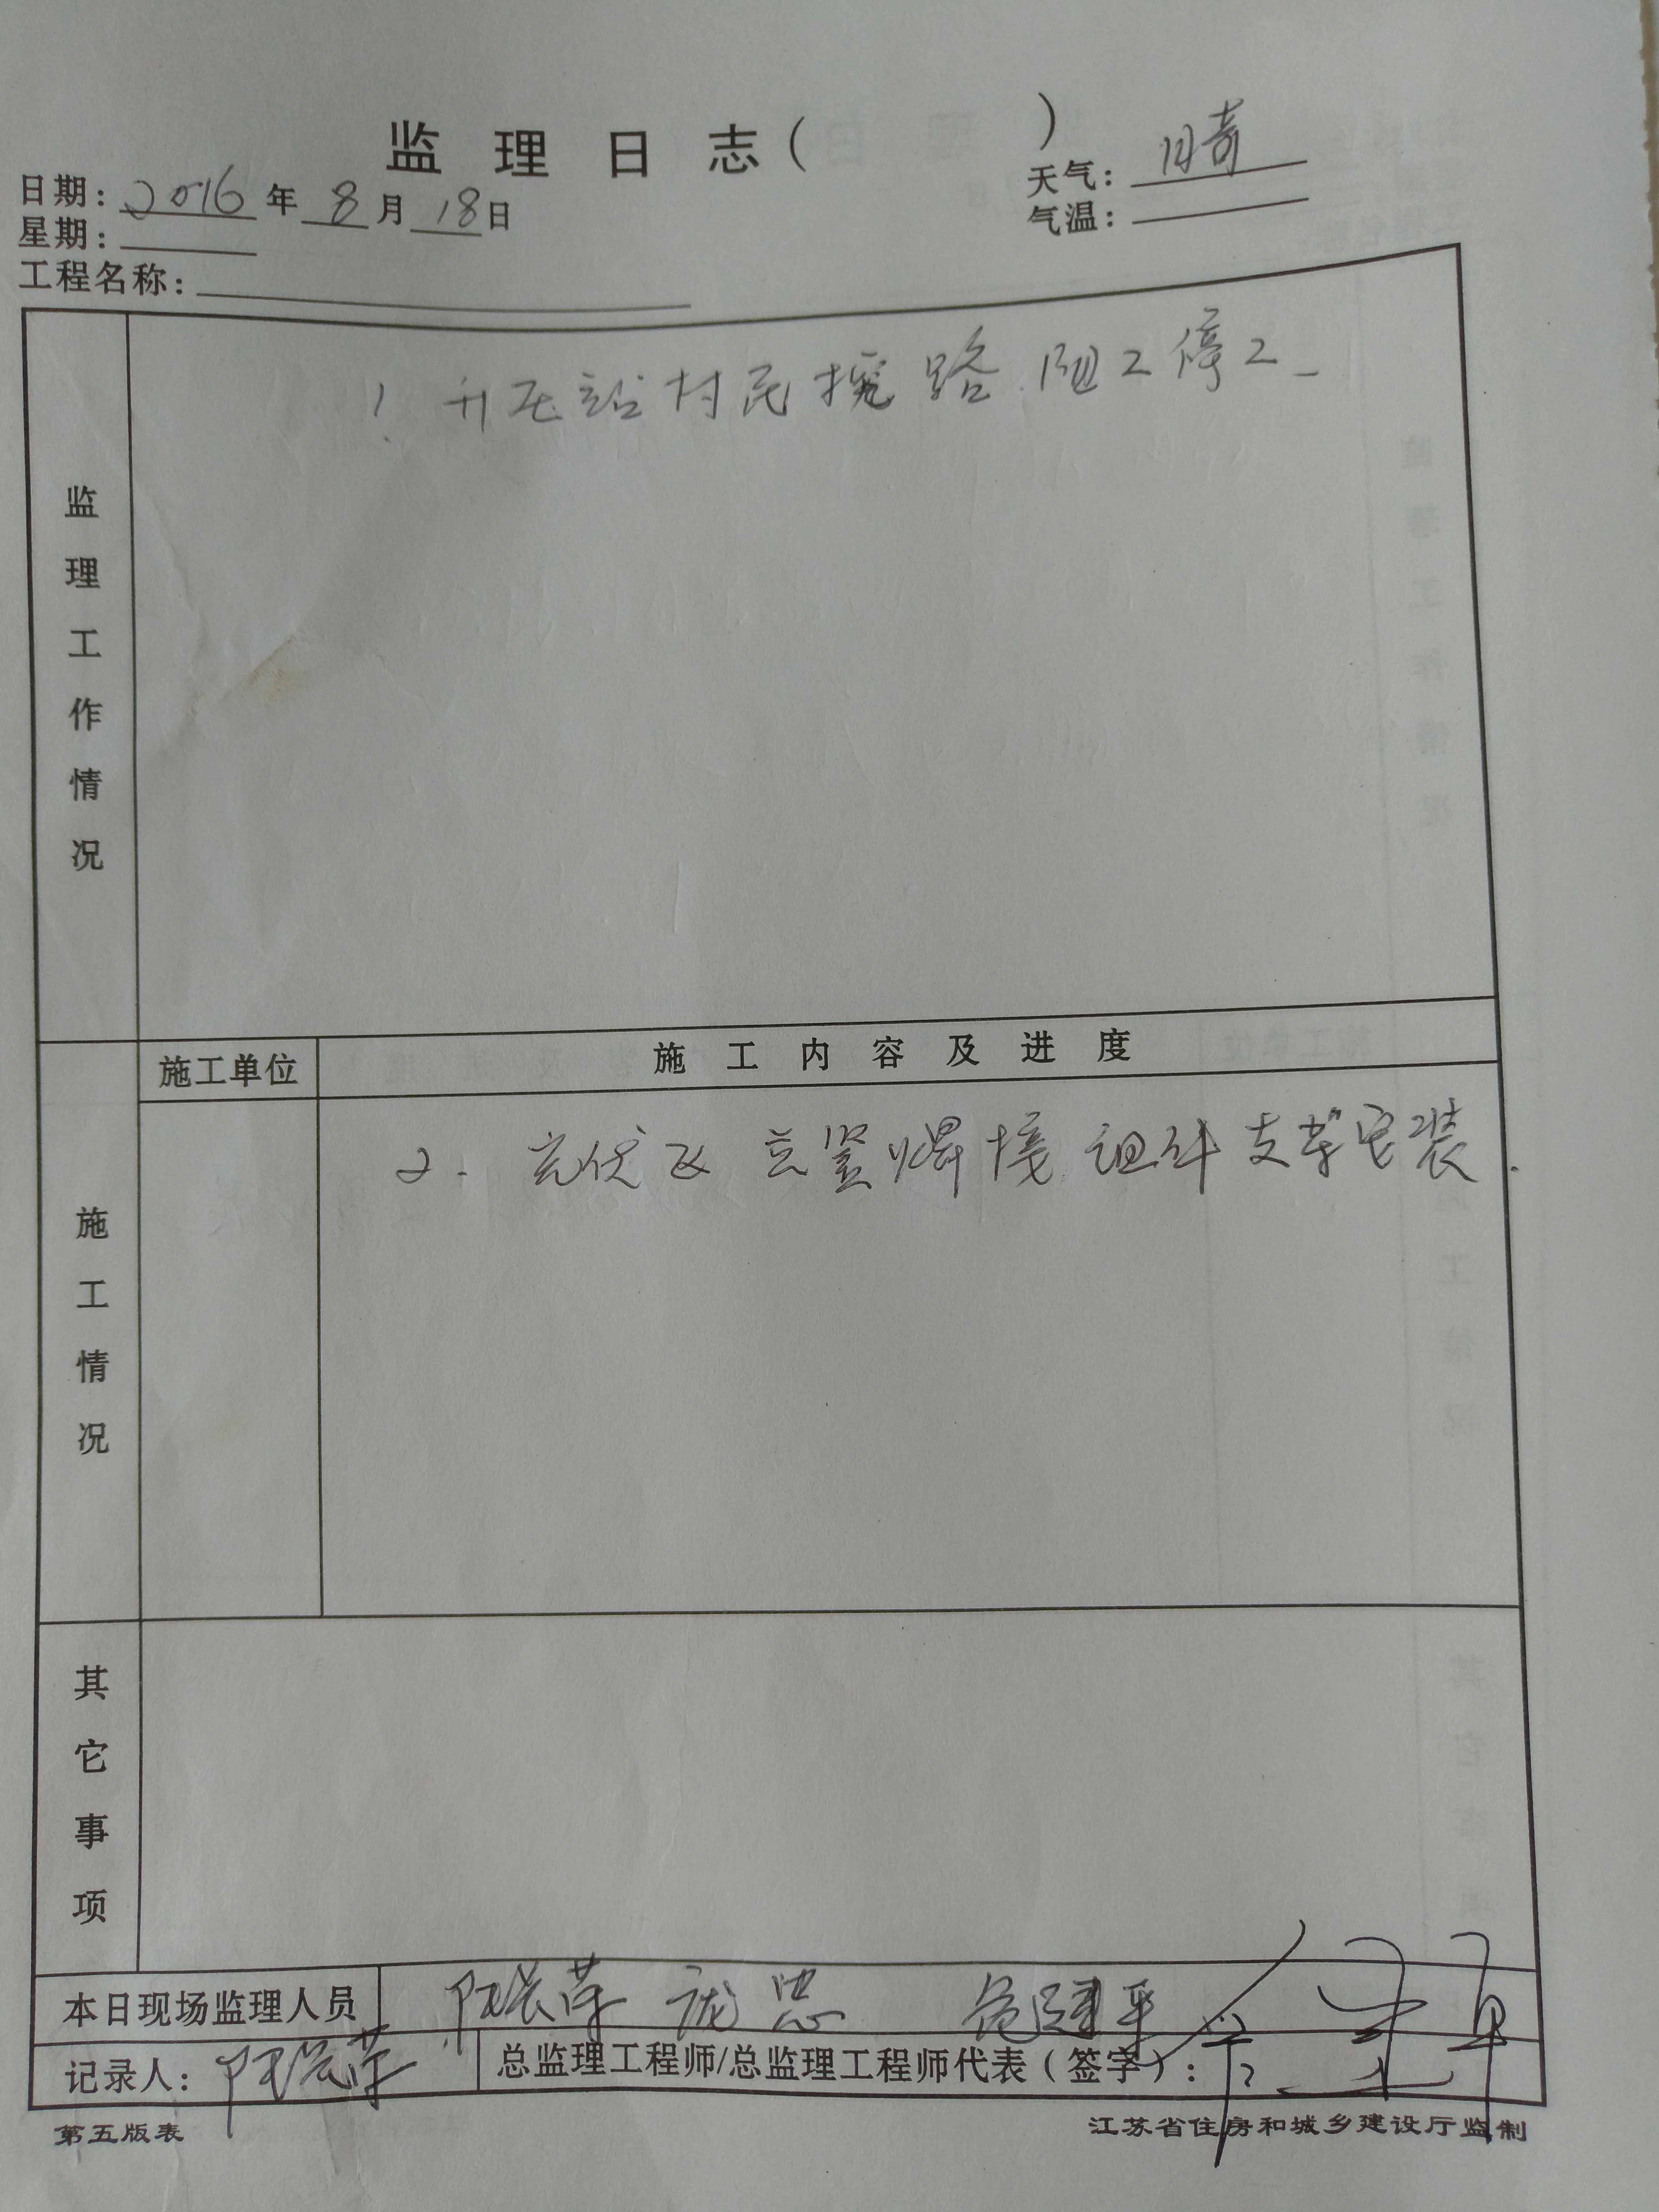 监理日志（ ）
日期：2016年8月18日
天气：晴
星期：
气温：
工程名称：
监理工作情况
1. 升压站村民拦路 阻工停工
施工情况
施工单位
施工内容及进度
2. 光伏区 立竖焊接 组件支架安装.
其它事项
本日现场监理人员
记录人：
总监理工程师/总监理工程师代表（签字）：
第五版表
江苏省住房和城乡建设厅监制